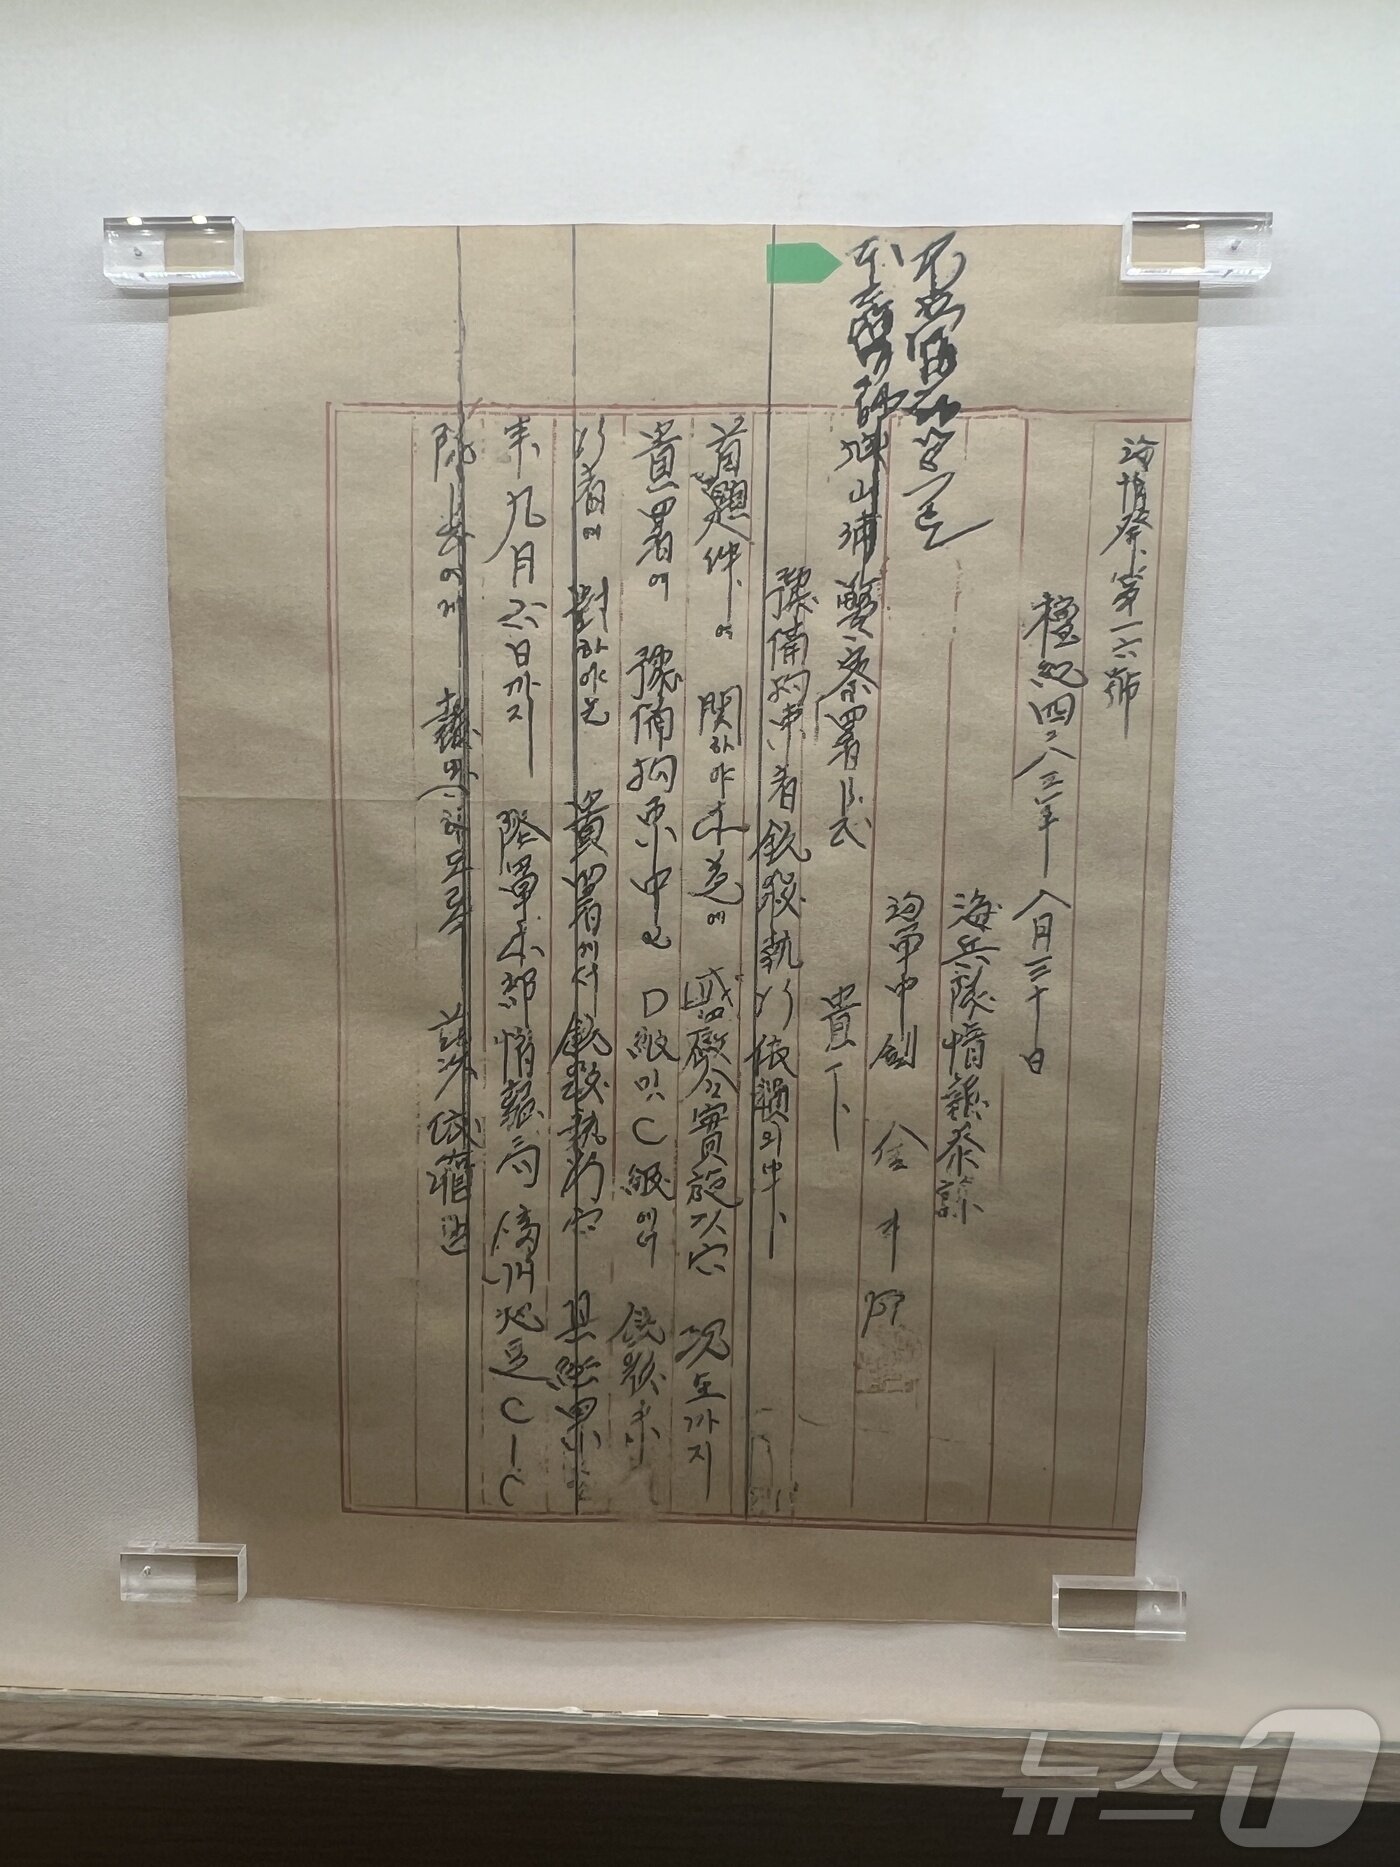 海情發第一六號
檀紀四二八三年 八月三十日
海兵隊情報參謀
海軍中領 金
城山浦警察署長 貴下
豫備拘束者銃殺執行依賴의件
首題件에 關하야 本道에 戒嚴令實施以後 現在까지
貴署에 豫備拘束中인 D級 및 C級에서 銃殺未
行者에 對하야는 貴署에서 銃殺執行後 其結果를
來九月六日까지 陸軍本部情報局 濟州地區CIC
隊長에게 報告하도록 玆以依賴함